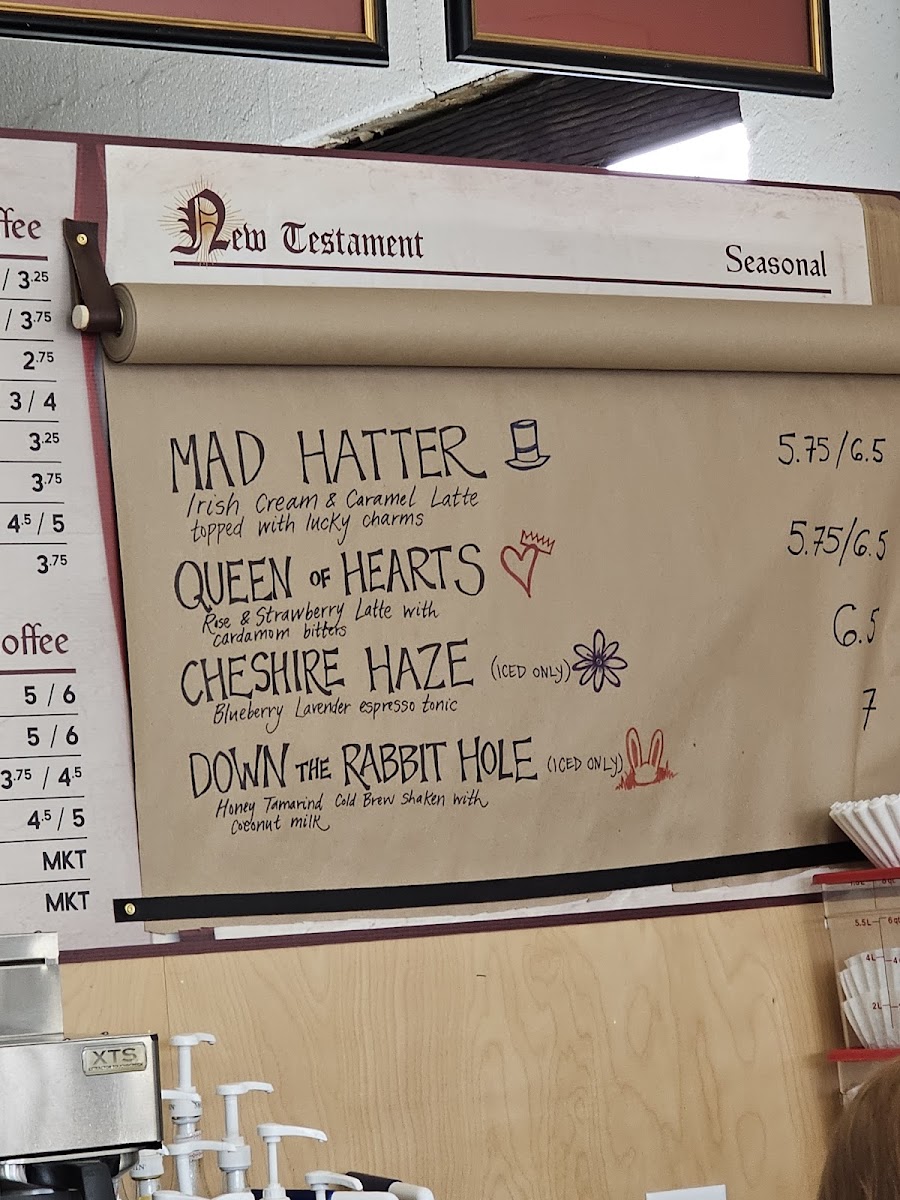 ffee
/ 3.25
/ 3.75
2.75
3 / 4
3.25
3.75
4.5 / 5
3.75
offee
5 / 6
5 / 6
3.75 / 4.5
4.5 / 5
MKT
MKT
New Testament
Seasonal
MAD HATTER 5.75/6.5
Irish Cream & Caramel Latte
topped with lucky charms
QUEEN OF HEARTS 5.75/6.5
Rose & Strawberry Latte with
cardamom bitters
CHESHIRE HAZE (ICED ONLY) 6.5
Blueberry Lavender espresso tonic
DOWN THE RABBIT HOLE (ICED ONLY) 7
Honey Tamarind Cold Brew shaken with
coconut milk
XTS
5.5L
4L
2L